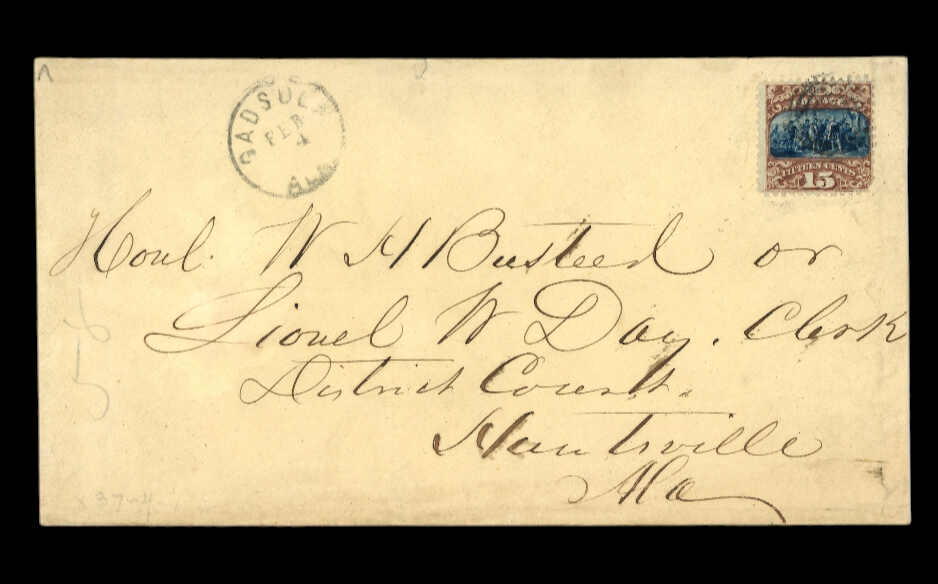 GADSDEN
FEB
4
ALA
POSTAGE
FIFTEEN CENTS
15
Honl. W H Busteed or
Lionel W Day. Clerk
District Court.
Huntsville
Ala
3744